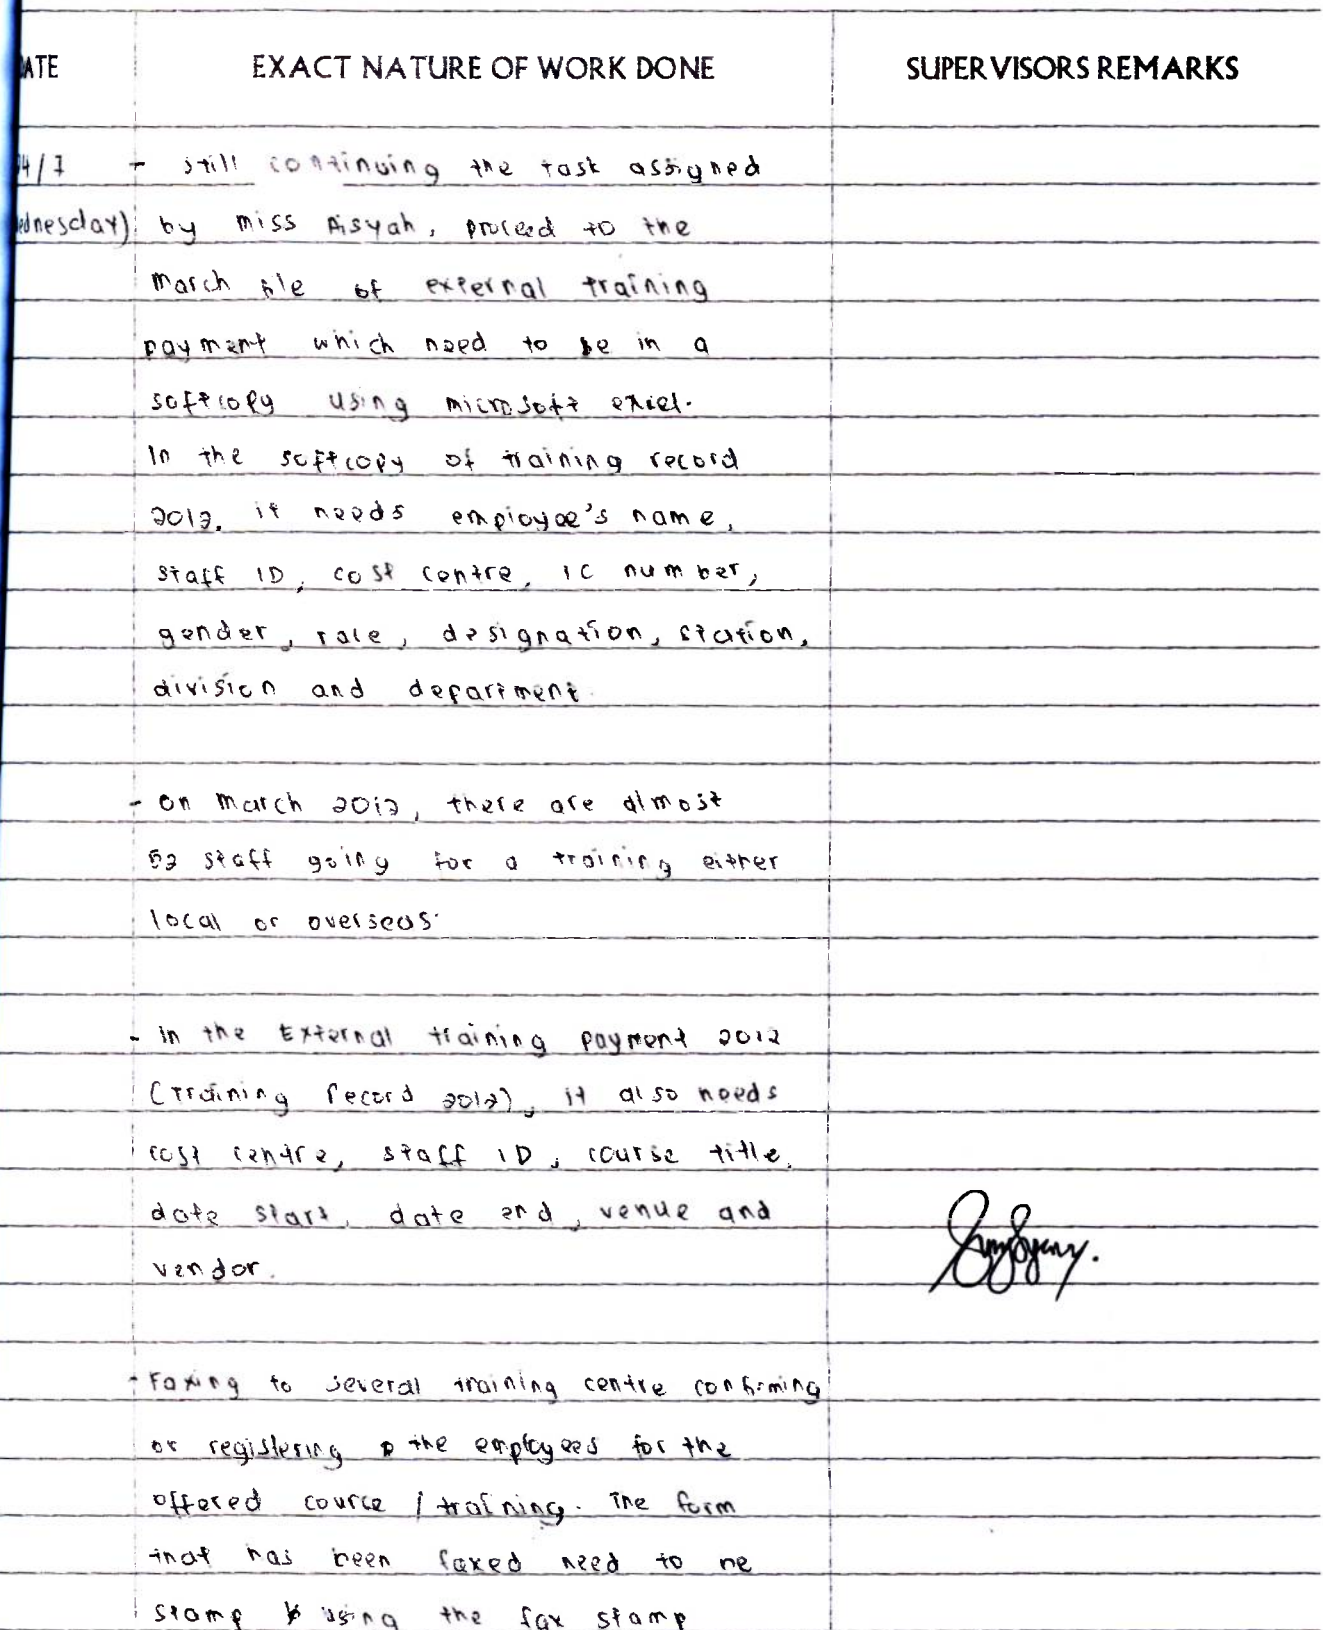 ATE EXACT NATURE OF WORK DONE SUPERVISORS REMARKS
4/7 - still continuing the task assigned
ednesday) by miss Aisyah, proceed to the
march file of external training
payment which need to be in a
softcopy using microsoft excel.
In the softcopy of training record
2012, it needs employee's name,
staff ID, cost centre, IC number,
gender, race, designation, station,
division and department.
- on march 2012, there are almost
52 staff going for a training either
local or overseas.
- in the External training payment 2012
(Training record 2012), it also needs
cost centre, staff ID, course title,
date start, date end, venue and
vendor.
- Faxing to several training centre confirming
or registering the employees for the
offered cource / training. The form
that has been faxed need to be
stamp using the fax stamp